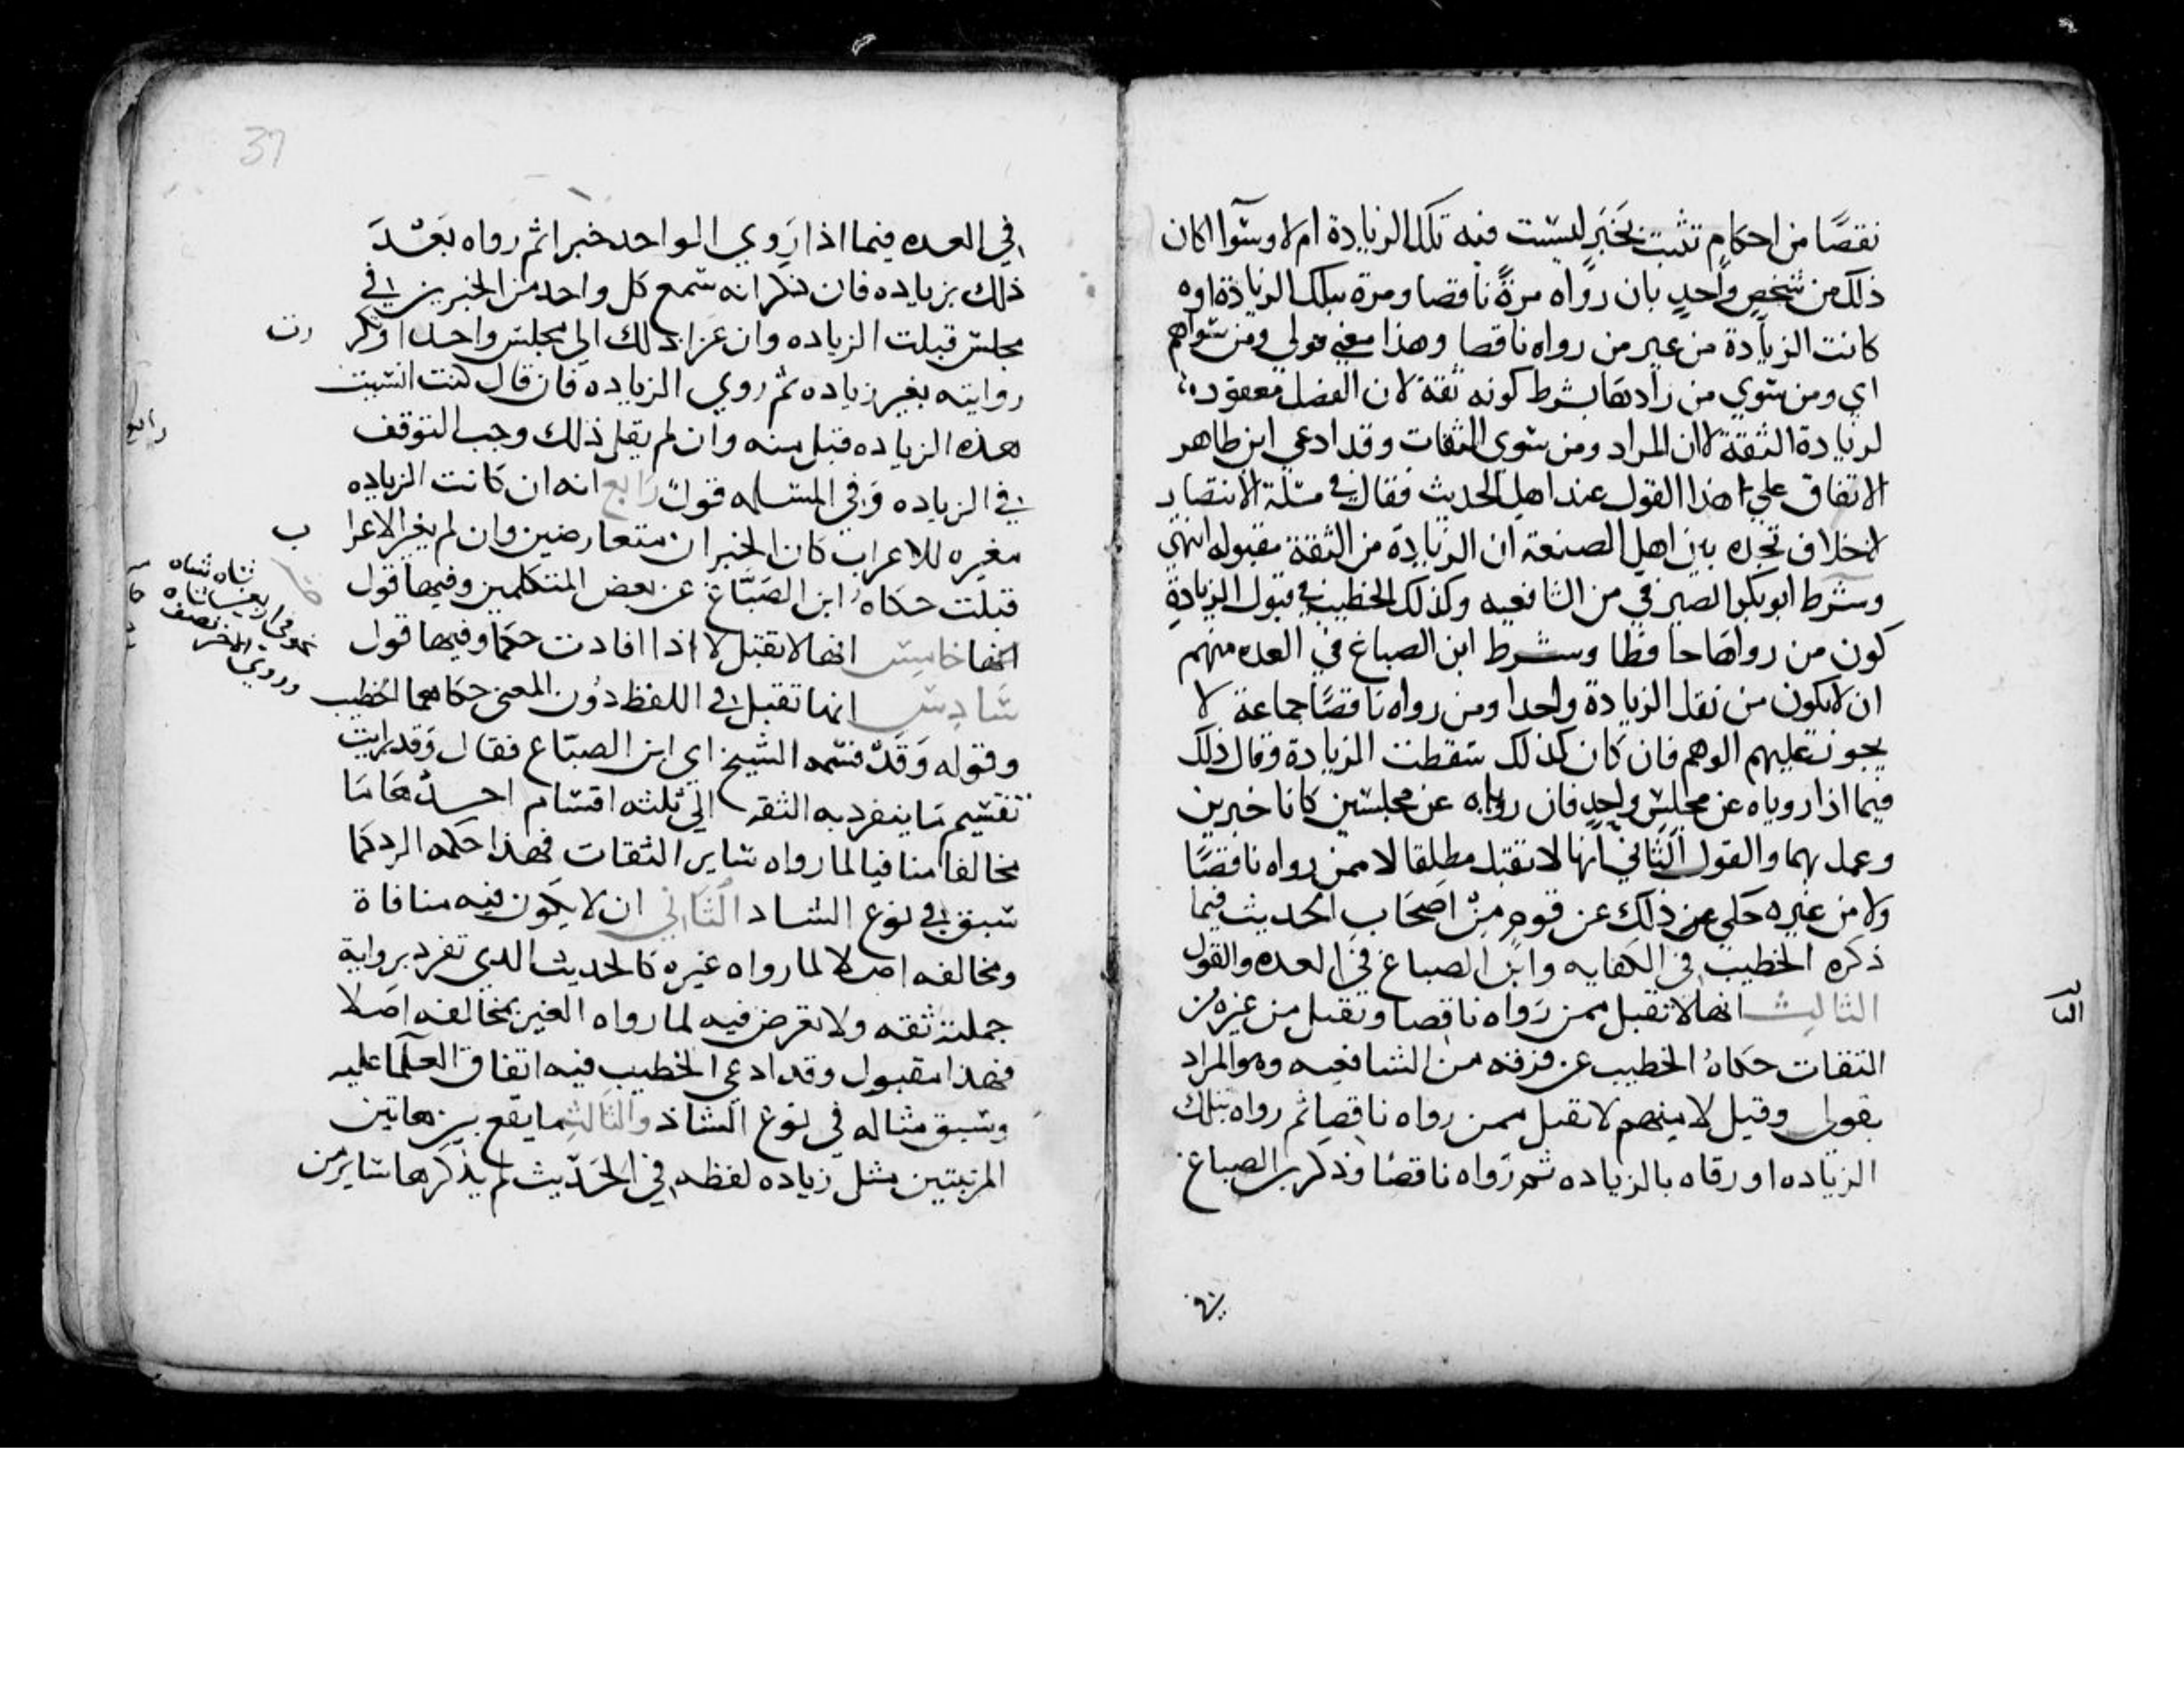 نقصًا من احكام تثبت بخبر ليست فيه تلك الزيادة ام لا وسوآ اكان
ذلك من شخص واحد بان رواه مرة ناقصا ومرة بتلك الزيادة او
كانت الزيادة من غير من رواه ناقصا وهذا معني قولي ومن سواهم
اي ومن سوي من زادها بشرط كونه ثقة لان الفصل معقود
لزيادة الثقة لا ان المراد ومن سوي الثقات وقد ادعي ابن طاهر
الاتفاق علي هذا القول عند اهل الحديث فقال في مسئلة الانتصار
لا خلاف تجده بين اهل الصنعة ان الزيادة من الثقة مقبوله انتهي
وشرط ابو بكر الصيرفي من الشافعيه وكذلك الخطيب في قبول الزيادة
كون من رواها حافظا وشرط ابن الصباغ في العده منهم
ان لا يكون من نقل الزيادة واحدا ومن رواه ناقصًا جماعة لا
يجوز عليهم الوهم فان كان كذلك سقطت الزيادة وقال ذلك
فيما اذا روياه عن مجلس واحد فان رواه عن مجلسين كانا خبرين
وعمل بهما والقول الثاني انها لا تقبل مطلقا لا ممن رواه ناقصًا
ولا من غيره حكي ذلك عن قوم من اصحاب الحديث فيما
ذكره الخطيب في الكفايه وابن الصباغ في العده والقول
الثالث انها لا تقبل ممن رواه ناقصا وتقبل من غيره من
الثقات حكاه الخطيب عن فرقه من الشافعيه وهو المراد
بقولي وقيل لا منهم لا تقبل ممن رواه ناقصا ثم رواه بتلك
الزياده او رواه بالزياده ثم رواه ناقصًا وذكر بن الصباغ
في
37
في العده فيما اذا روي الواحد خبرا ثم رواه بعد
ذلك بزياده فان ذكر انه سمع كل واحد من الخبرين في
مجلس قبلت الزياده وان عزا ذلك الي مجلس واحد او تكر رت
روايته بغير زياده ثم روي الزياده فان قال كنت انسيت
هذه الزياده قبل منه وان لم يقل ذلك وجب التوقف
في الزياده وفي المسئله قول رابع انه ان كانت الزياده
مغيره للاعراب كان الخبران متعارضين وان لم يغير الاعرا ب
قبلت حكاه ابن الصباغ عن بعض المتكلمين وفيها قول
خامس انها لا تقبل الا اذا افادت حكما وفيها قول
سادس انها تقبل في اللفظ دون المعني حكاهما الخطيب
وقوله وقد قسمه الشيخ اي ابن الصباغ فقال وقد رايت
تقسيم ما ينفرد به الثقه الي ثلثه اقسام احدها ما
مخالفا منافيا لما رواه ساير الثقات فهذا حكمه الرد كما
سبق في نوع الشاذ الثاني ان لا يكون فيه منافاة
ومخالفه اصلا لما رواه غيره كالحديث الذي تفرد برواية
جملته ثقه ولا تعرض فيه لما رواه الغير بمخالفه اصلا
فهذا مقبول وقد ادعي الخطيب فيه اتفاق العلما عليه
وسبق مثاله في نوع الشاذ والثالث ما يقع بين هاتين
المرتبتين مثل زياده لفظه في الحديث لم يذكرها ساير من
رابع